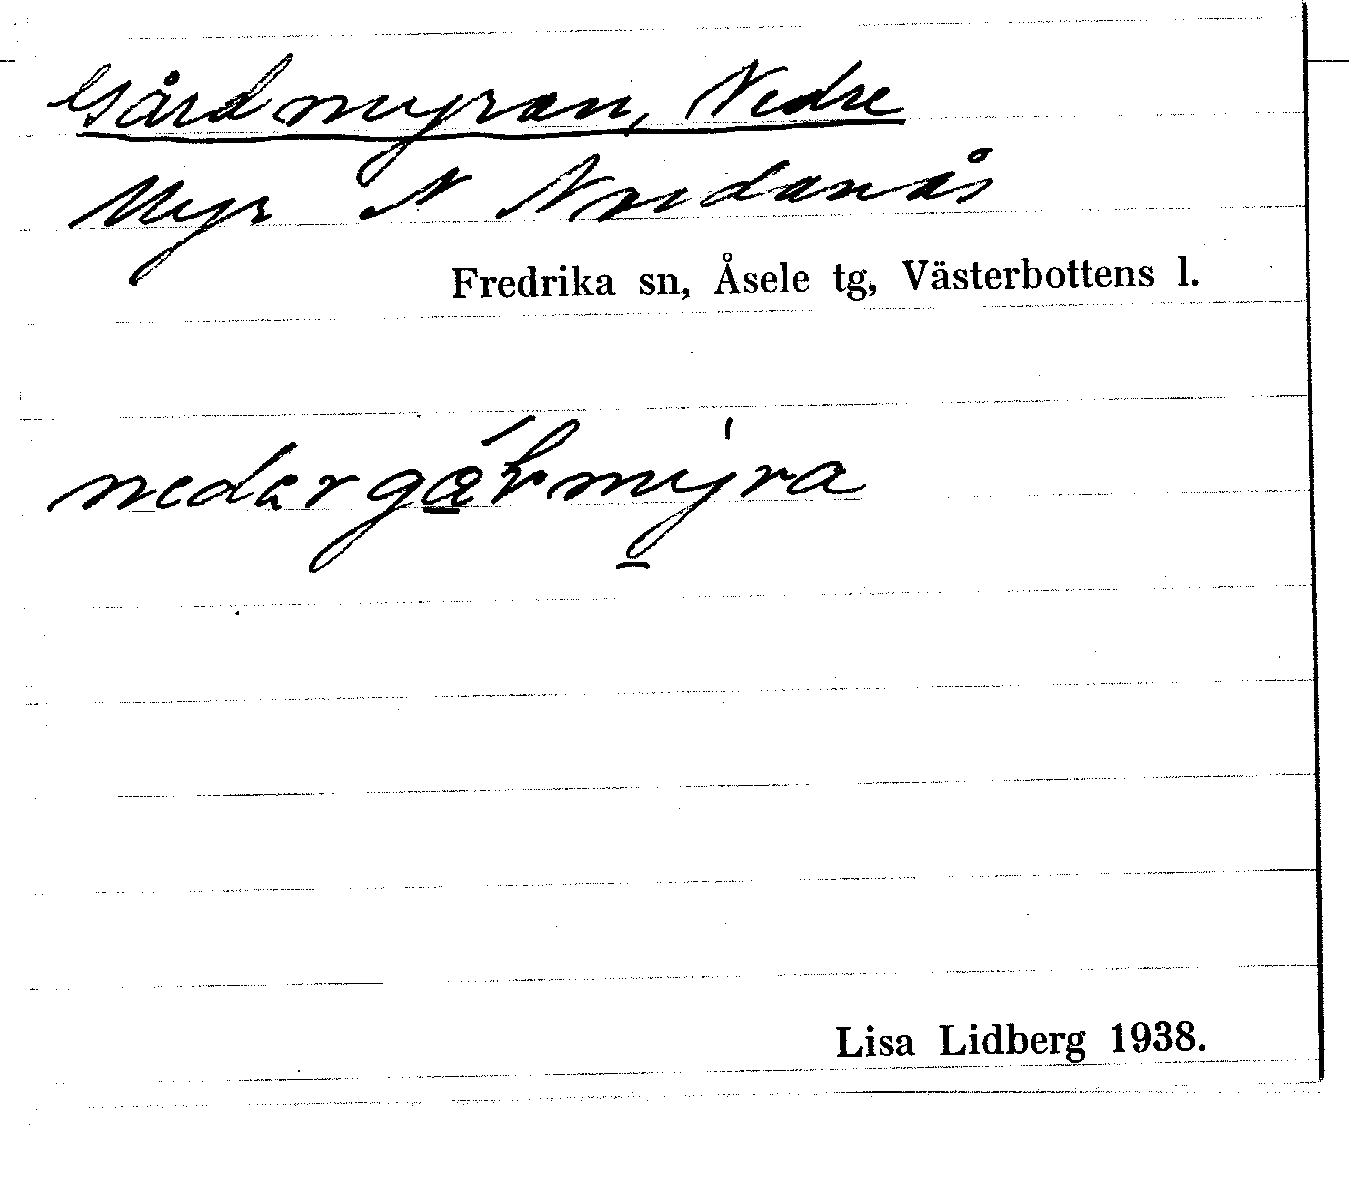 Gårdmyran, Nedre
Myr N Nordanås
Fredrika sn, Åsele tg, Västerbottens l.
Lisa Lidberg 1938.